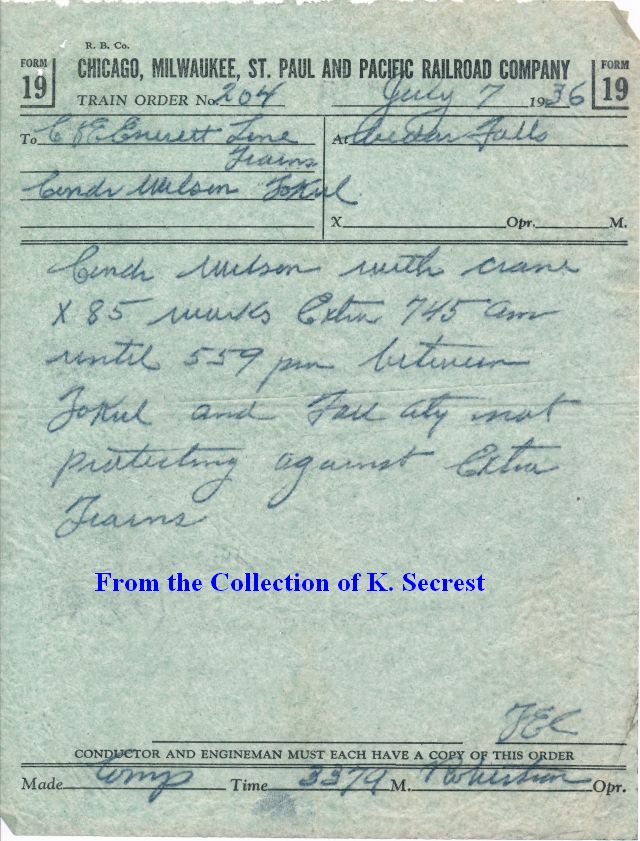 R. B. Co.
FORM 19
CHICAGO, MILWAUKEE, ST. PAUL AND PACIFIC RAILROAD COMPANY
FORM 19
TRAIN ORDER No. 204 July 7 1936
To C & E Everett Line Trains
At Cedar Falls
Condr Wilson Tokul
X Opr. M.
Condr Wilson with crane
X 85 works Extra 745 am
until 559 pm between
Tokul and Fall City not
protecting against Extra
Trains
From the Collection of K. Secrest
CONDUCTOR AND ENGINEMAN MUST EACH HAVE A COPY OF THIS ORDER
Made Comp Time M. Robertson Opr.